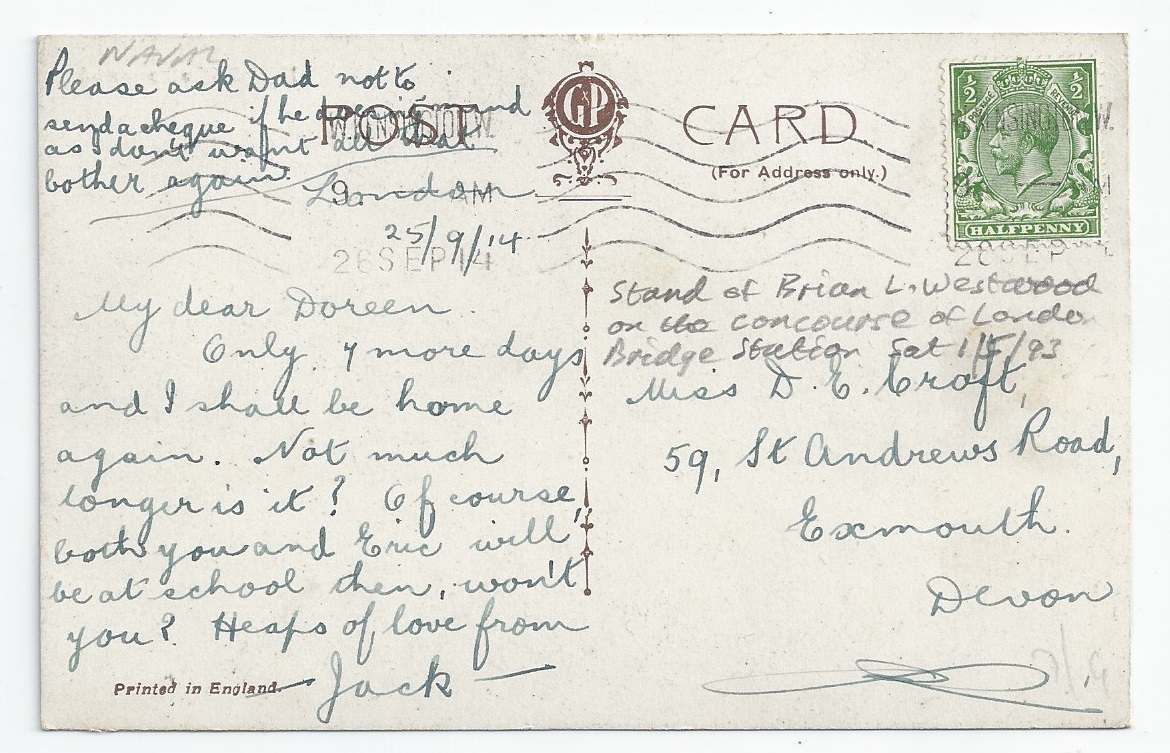 NAVAL
Please ask Dad not to
send a cheque if he does
as don't want all that
bother again.
POST CARD
(For Address only.)
GP
½ ½
POSTAGE REVENUE
HALFPENNY
London
25/9/14
9 AM
26 SEP 14
My dear Doreen
Only 7 more days
and I shall be home
again. Not much
longer is it? Of course,
both you and Eric will
be at school then, won't
you? Heaps of love from
Jack
Printed in England.
Stand of Brian L. Westwood
on the concourse of London
Bridge Station Sat 1/5/93
Miss D. E. Croft,
59, St Andrews Road,
Exmouth.
Devon